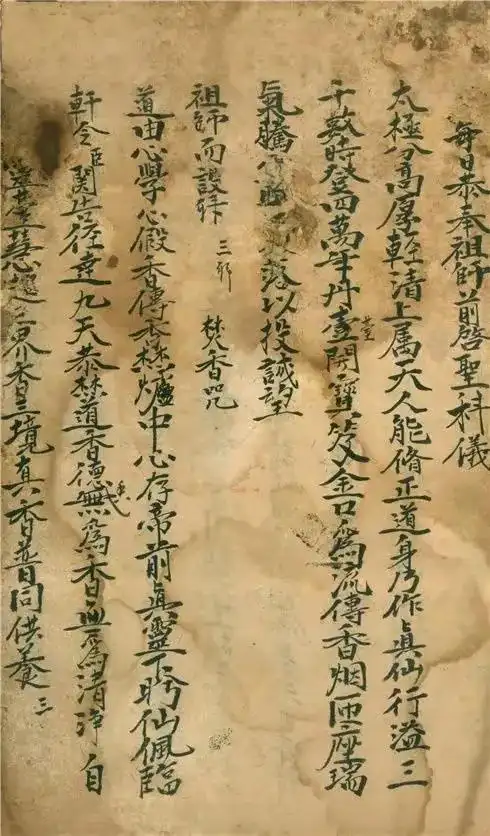 每日恭奉祖師前啓聖科儀
太極分高厚輕清上属天人能脩正道身乃作真仙行溢三
千數時登四萬年丹臺開寶笈金口爲流傳香烟匝座瑞
氣騰落以投誠望
祖師而設拜 三躬 焚香咒
道由心學心假香傳香爇爐中心存帝前真靈下盼仙佩臨
軒令臣関告径達九天恭焚道香德香無爲香無爲清淨自
界香三境真香普同供養 三